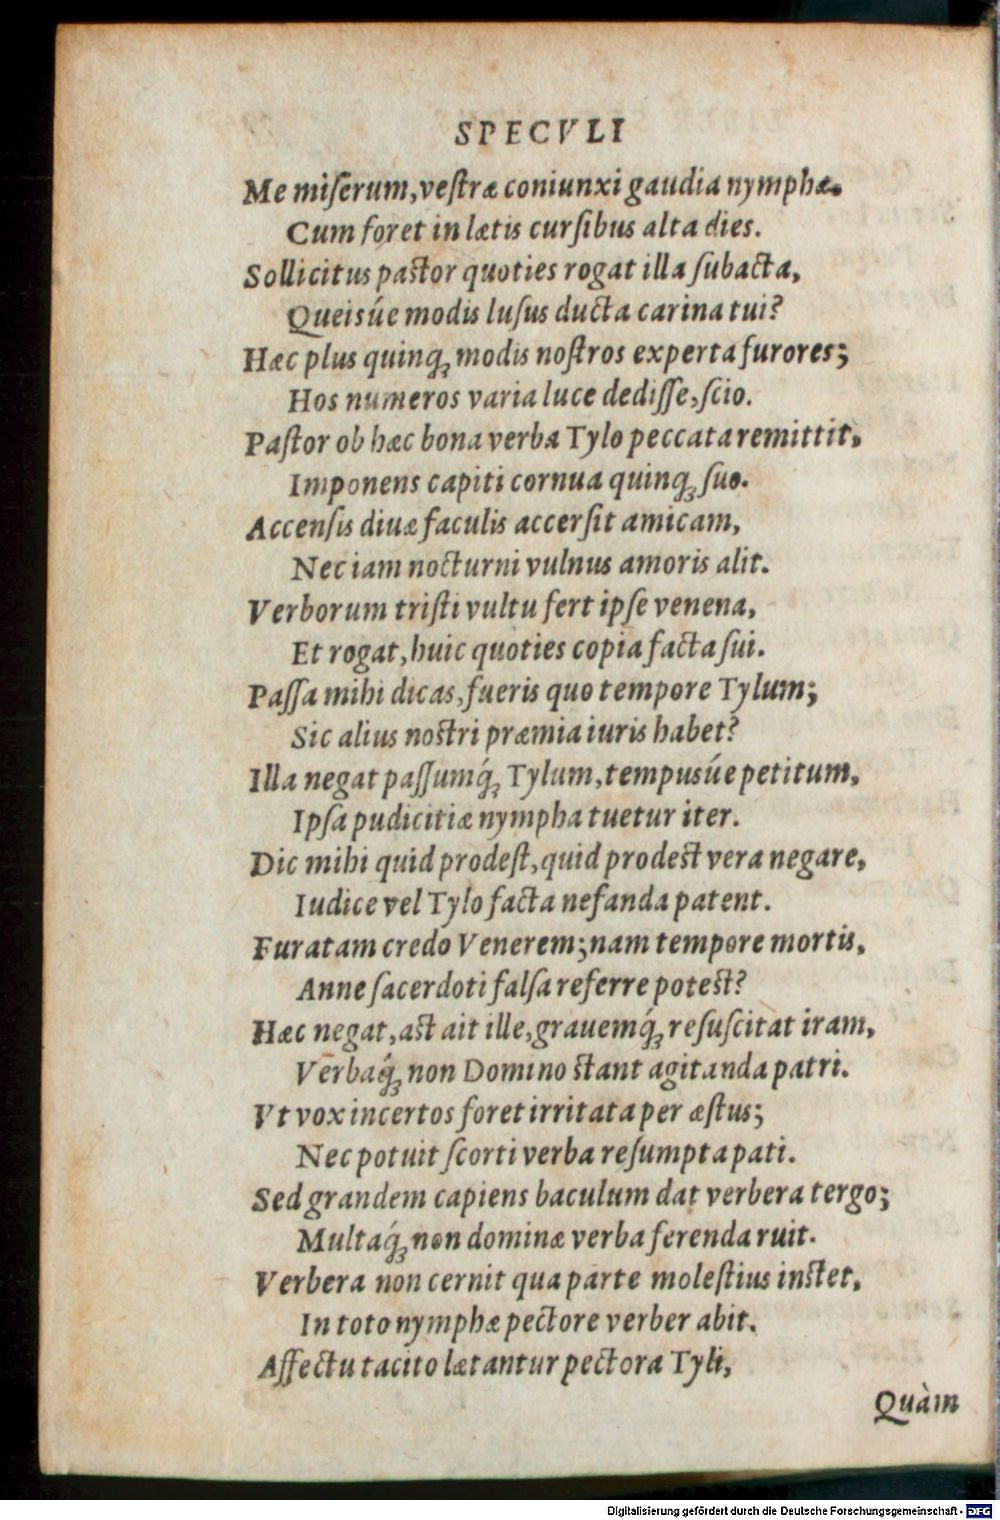 SPECVLI
Me miſerum, veſtræ coniunxi gaudia nymphæ.
Cum foret in lætis curſibus alta dies.
Sollicitus paſtor quoties rogat illa ſubacta,
Queisúe modis luſus ducta carina tui?
Hæc plus quinq; modis noſtros experta furores;
Hos numeros varia luce dediſſe, ſcio.
Paſtor ob hæc bona verba Tylo peccata remittit,
Imponens capiti cornua quinq; ſuo.
Accenſis diuæ faculis accerſit amicam,
Nec iam nocturni vulnus amoris alit.
Verborum triſti vultu fert ipſe venena,
Et rogat, huic quoties copia facta ſui.
Paſſa mihi dicas, fueris quo tempore Tylum;
Sic alius noſtri præmia iuris habet?
Illa negat paſſumq́; Tylum, tempusúe petitum,
Ipſa pudicitiæ nympha tuetur iter.
Dic mihi quid prodeſt, quid prodeſt vera negare,
Iudice vel Tylo facta nefanda patent.
Furatam credo Venerem; nam tempore mortis,
Anne ſacerdoti falſa referre poteſt?
Hæc negat, aſt ait ille, grauemq́; reſuſcitat iram,
Verbaq́; non Domino ſtant agitanda patri.
Vt vox incertos foret irritata per æſtus;
Nec potuit ſcorti verba reſumpta pati.
Sed grandem capiens baculum dat verbera tergo;
Multaq́; non dominæ verba ferenda ruit.
Verbera non cernit qua parte moleſtius inſtet,
In toto nymphæ pectore verber abit.
Affectu tacito lætantur pectora Tyli,
Quàm
Digitalisierung gefördert durch die Deutsche Forschungsgemeinschaft - DFG